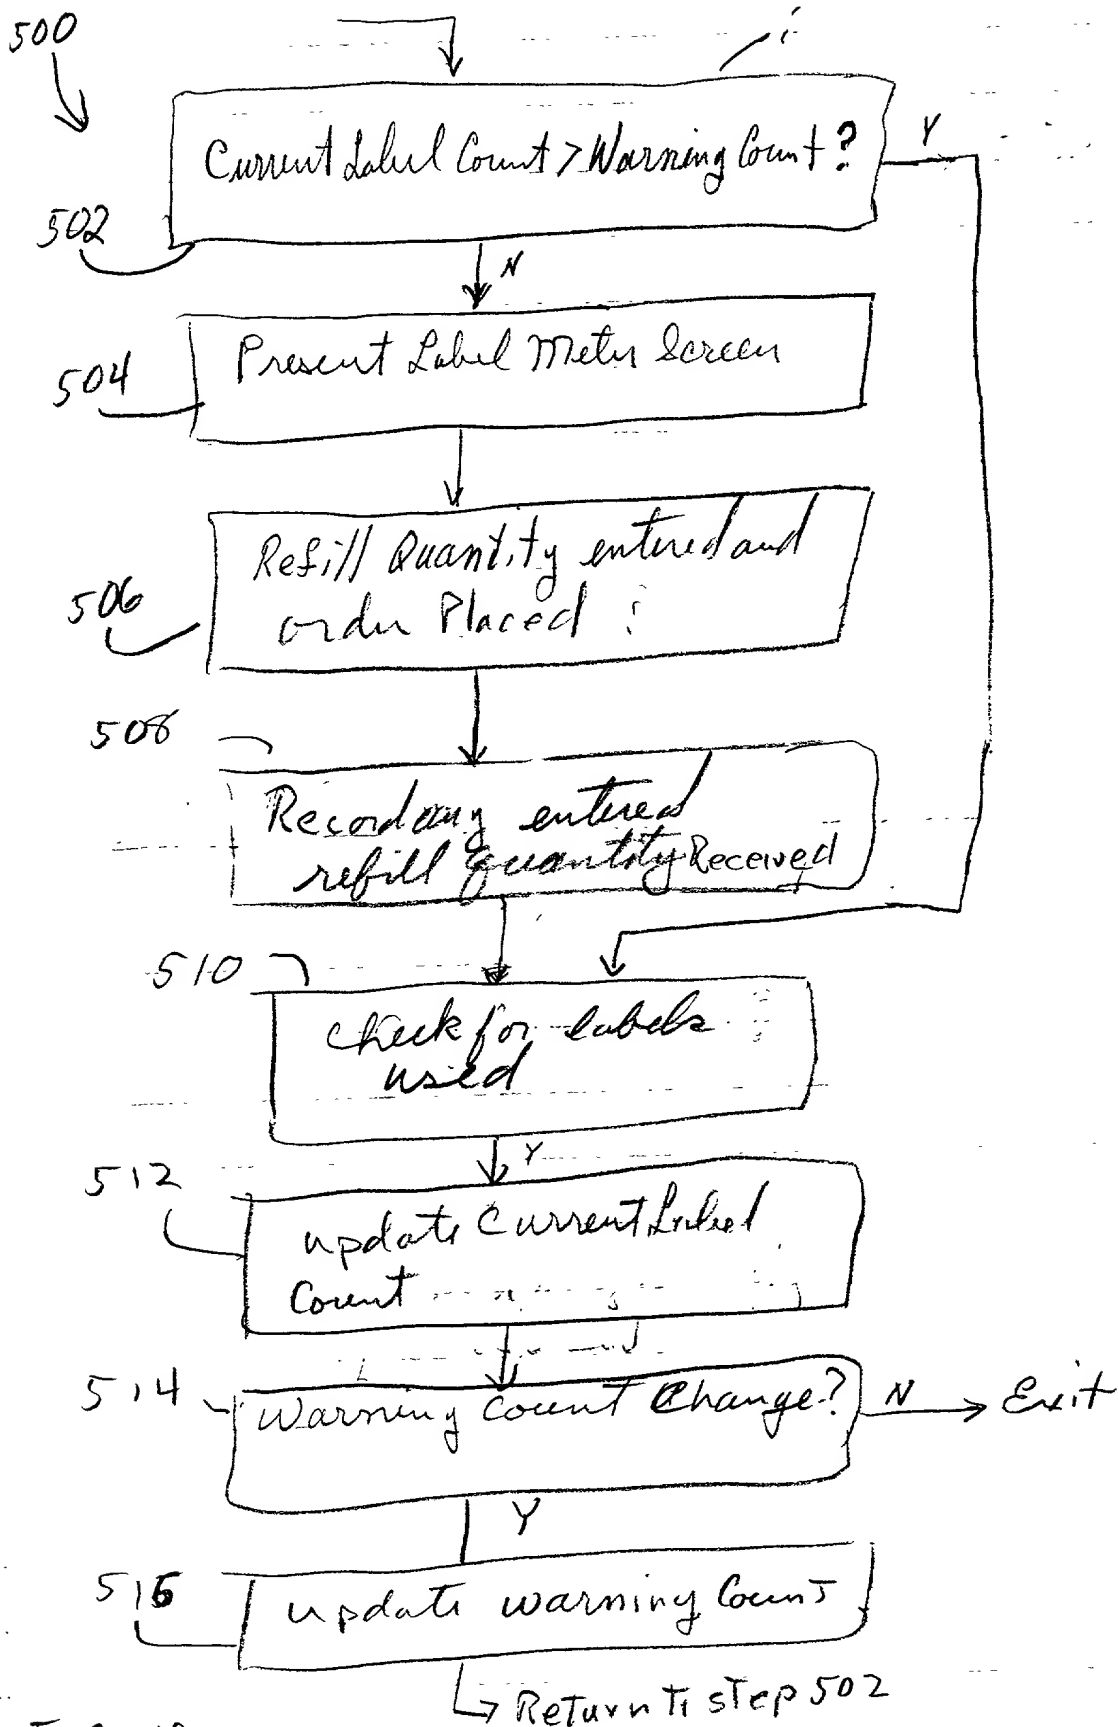 500
Current Label Count > Warning Count?
Y
502
N
Present Label Meter Screen
504
Refill Quantity entered and
order Placed
506
508
Record any entered
refill quantity Received
510
Check for labels
used
Y
512
update Current Label
Count
514
Warning Count Change?
N
Exit
Y
516
update warning Count
Return to step 502